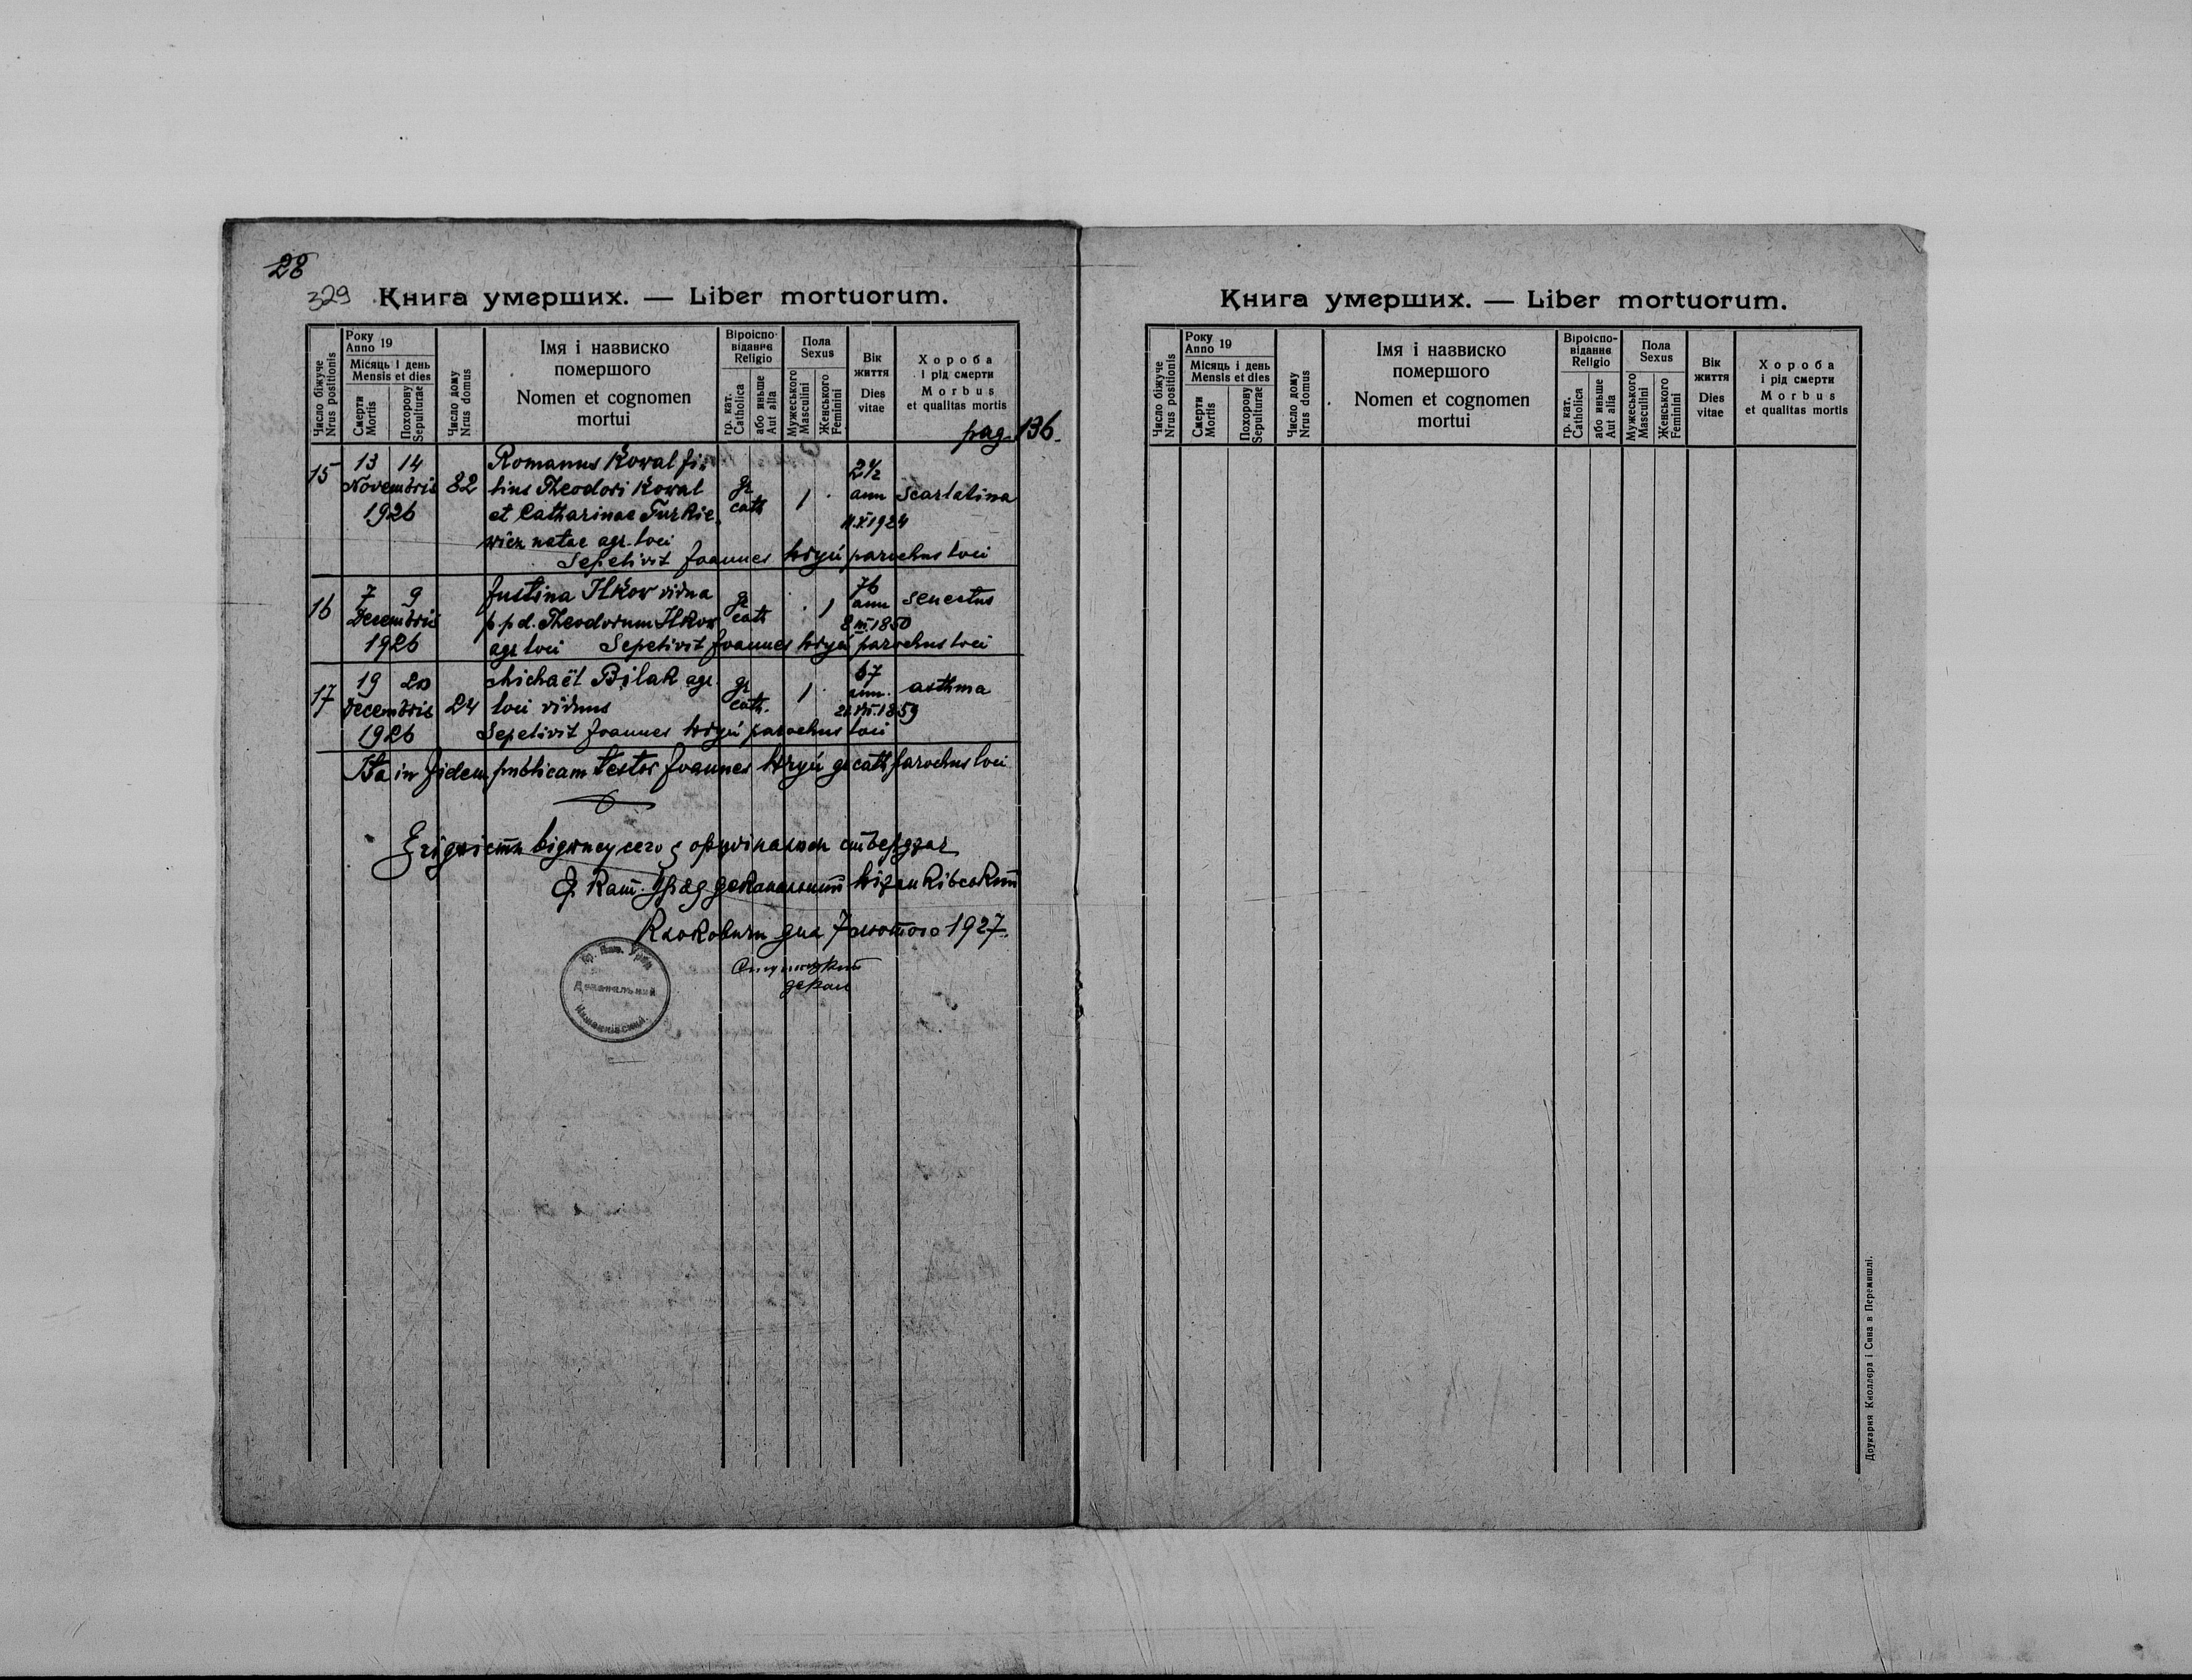 28
329 Книга умерших. — Liber mortuorum.
Число біжуче Nrus positionis
Року Anno 19
Місяць і день Mensis et dies
Смерти Mortis
Похорону Sepulturae
Число дому Nrus domus
Імя і назвиско помершого
Nomen et cognomen mortui
Віроіспо-відание Religio
гр. кат. Catholica
або иньше Aut alia
Пола Sexus
Мужеського Masculini
Женського Feminini
Вік життя Dies vitae
Хороба і рід смерти
Morbus et qualitas mortis
pag. 136.
15 13 14 Novembris 1926 82
Romanus Kowal fi-
lius Theodori Kowal
et Catharinae Turkie-
wicz natae agr. loci
gr cath 1 2½ ann 11.X1924 scarlatina
Sepelivit Joannes Hryń parochus loci
16 7 9 Decembris 1926
Justina Ilkow vidua
p p.d. Theodorum Ilkow
agr loci Sepelivit Joannes Hryń parochus loci
gr cath 1 76 ann 8 III.1850 senectus
17 19 20 Decembris 1926 24
Michaël Bilak agr.
loci viduus
gr cath. 1 67 ann. 1859 asthma
Sepelivit Joannes Hryń parochus loci
Ita in fidem publicam testor Joannes Hryń gr cath parochus loci
Згідність відпису сего з оригіналом стверджає
Гр. Кат. Уряд деканальний Нижанківський
Клоковичи дня 7 лютого 1927.
декан
Гр. Кат. Уряд
Деканальний
Нижанківский
Книга умерших. — Liber mortuorum.
Число біжуче Nrus positionis
Року Anno 19
Місяць і день Mensis et dies
Смерти Mortis
Похорону Sepulturae
Число дому Nrus domus
Імя і назвиско помершого
Nomen et cognomen mortui
Віроіспо-відание Religio
гр. кат. Catholica
або иньше Aut alia
Пола Sexus
Мужеського Masculini
Женського Feminini
Вік життя Dies vitae
Хороба і рід смерти
Morbus et qualitas mortis
Друкарня Кноллера і Сина в Перемишлі.